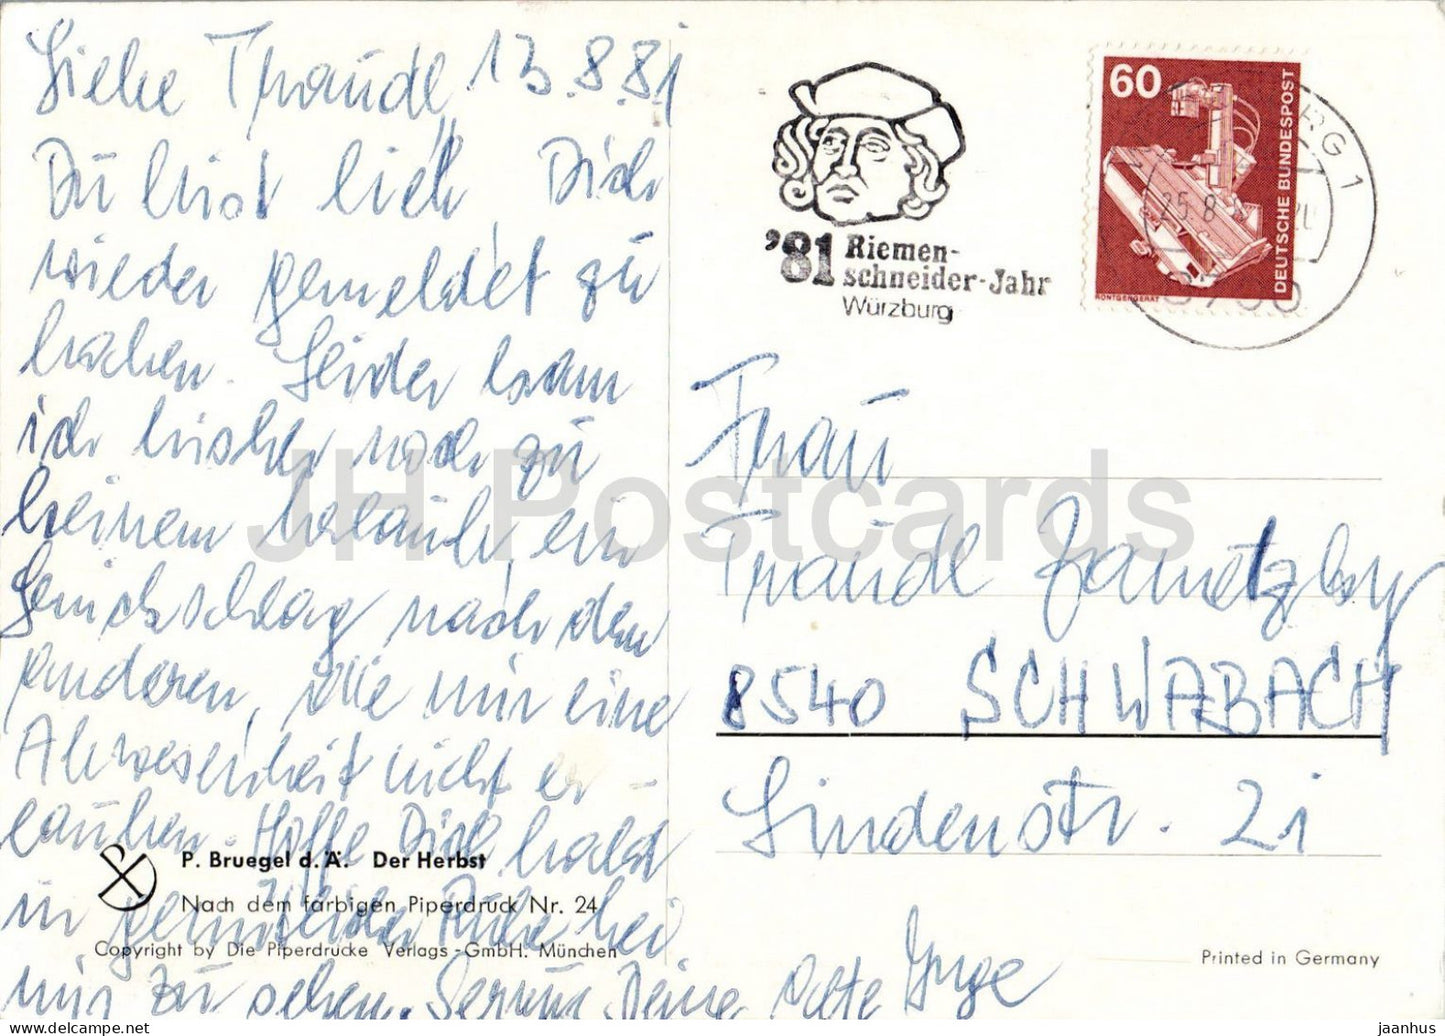 Liebe Traudl 13.8.81
Du bist lieb, Dich
wieder gemeldet zu
haben. Leider kam
ich bisher noch zu
keinem Urlaub, ein
schlag nach dem
anderen, die mir eine
Abwesenheit nicht er-
lauben. Hoffe Dich bald
in gemütlicher Ruhe bei
mir zu sehen. Servus Deine alte Inge
'81 Riemen-
schneider-Jahr
Würzburg
60
DEUTSCHE BUNDESPOST
RÖNTGENGERÄT
RG 1
25.8
8700
Frau
Traudl
8540 SCHWABACH
Lindenstr. 21
P. Bruegel d. Ä. Der Herbst
Nach dem farbigen Piperdruck Nr. 24
Copyright by Die Piperdrucke Verlags-GmbH. München
Printed in Germany
JH Postcards
delcampe.net
jaanhus